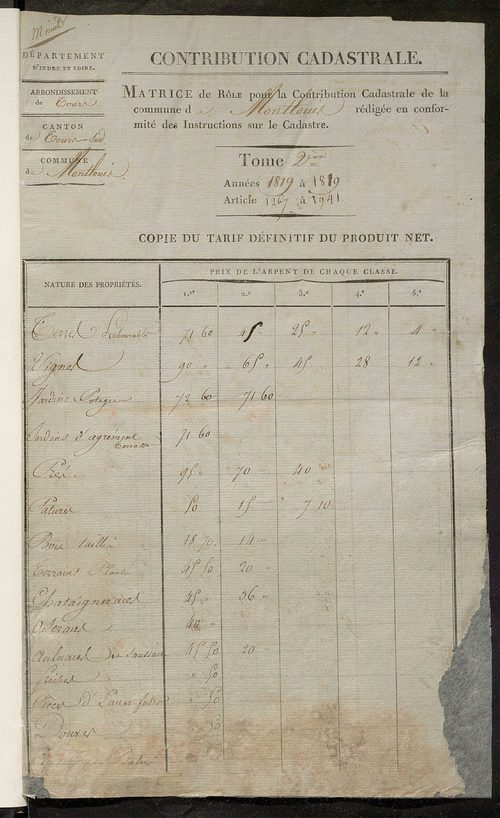 DÉPARTEMENT
D'INDRE ET LOIRE.
ARRONDISSEMENT
de Tours
CANTON
de Tours Sud
COMMUNE
de Montlouis.
CONTRIBUTION CADASTRALE.
MATRICE de RÔLE pour la Contribution Cadastrale de la
commune de Montlouis rédigée en confor-
mité des Instructions sur le Cadastre.
Tome 2
Années 1819 à 1819
Article 1267 à 1941
COPIE DU TARIF DÉFINITIF DU PRODUIT NET.
NATURE DES PROPRIÉTÉS. PRIX DE L'ARPENT DE CHAQUE CLASSE.
1.re 2.e 3.e 4.e 5.e
Terres Labourables 71 60 45 25 " 12 " 4 "
Vignes 90 " 65 " 45 28 12 "
Jardins Potagers 72 60 71 60
Jardins d'agrément 71 60
Terrasse
Prés 95 " 70 " 40 "
Pature 50 15 " 7 10
Bois taillis 18 14 "
Terrains Plantés 45 50 20 "
Chataigneraies 45 " 36 "
Oseraies 40 "
Aulnaies 45 50 20 "
50
Pièces d'eau 50
Douves 50